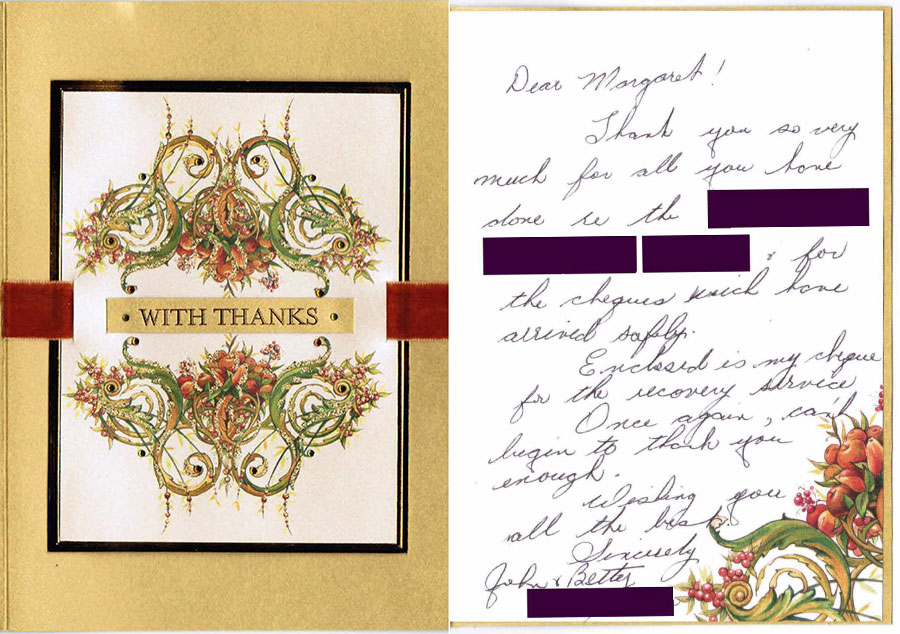 WITH THANKS
Dear Margaret!
Thank you so very
much for all you have
done re the
& for
the cheques which have
arrived safely.
Enclosed is my cheque
for the recovery service
Once again, can't
begin to thank you
enough.
Wishing you
all the best.
Sincerely
John & Bette